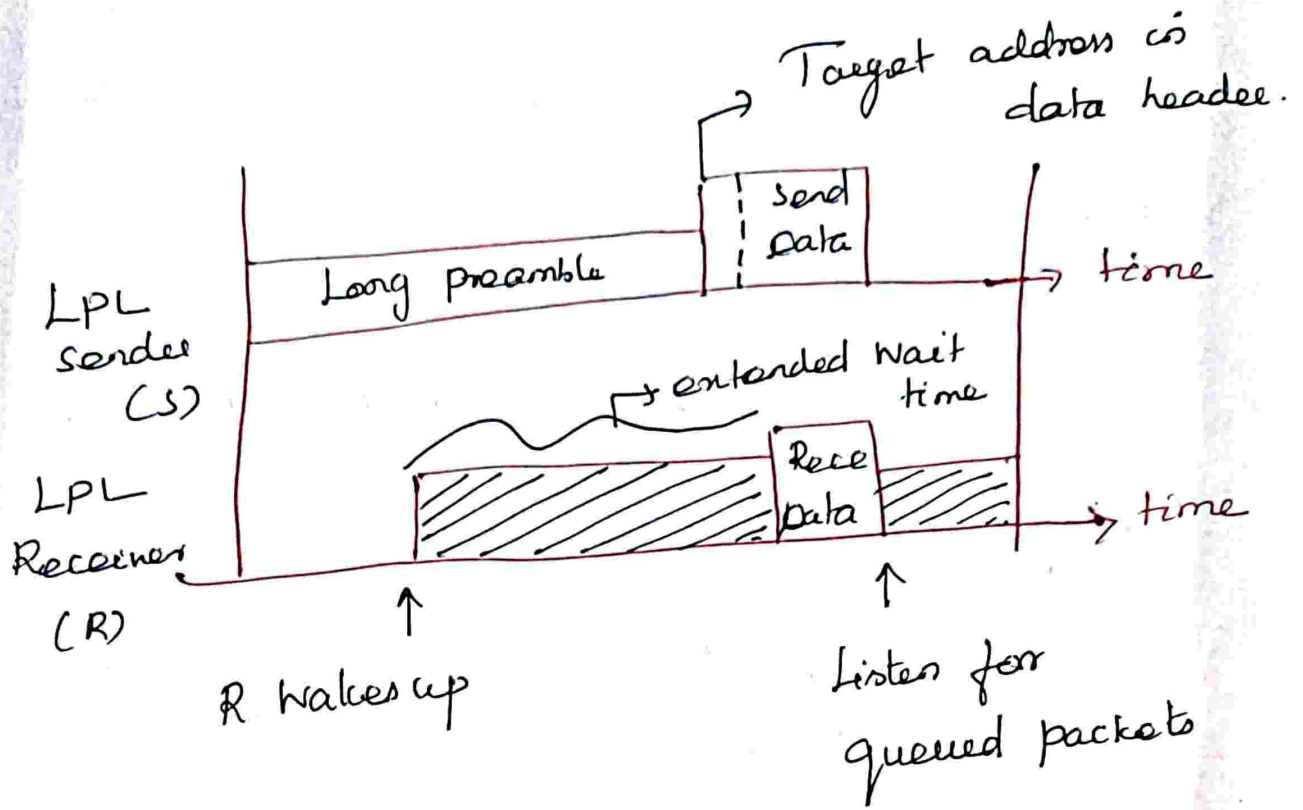 Target address in
data header.
Send
Data
Long preamble
time
LPL
Sender
(S)
extended wait
time
Rece
Data
LPL
Receiver
(R)
time
R wakes up
Listen for
queued packets